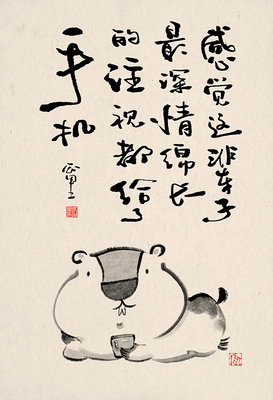 感觉这辈子
最深情绵长
的注视都给了
手机